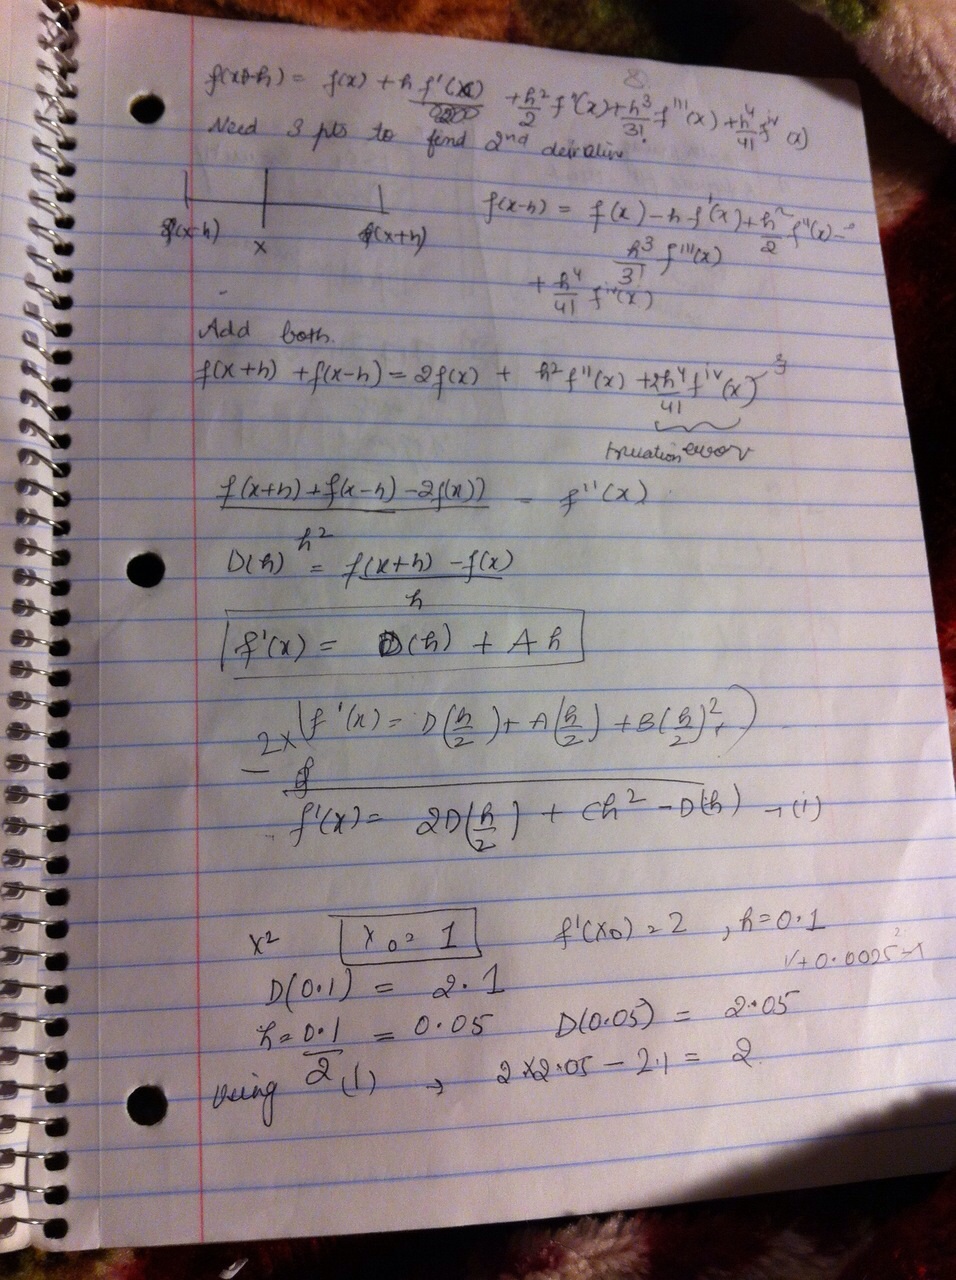 f(x+h) = f(x) + h f'(x) + h²/2 f''(x) + h³/3! f'''(x) + h⁴/4! f^iv (x)
Need 3 pts to find 2nd derivative
f(x-h) x f(x+h)
f(x-h) = f(x) - h f'(x) + h²/2 f''(x) -
h³/3! f'''(x)
+ h⁴/4! f^iv(x)
Add both.
f(x+h) + f(x-h) = 2f(x) + h² f''(x) + 2h⁴/4! f^iv(x)
error
f(x+h) + f(x-h) - 2f(x)) / h² = f''(x)
D(h) = f(x+h) - f(x) / h
f'(x) = D(h) + A h
2x (f'(x) = D(h/2) + A(h/2) + B(h/2)²)
-
f'(x) = 2D(h/2) + Ch² - D(h) → (1)
x² x₀ = 1 f'(x₀) = 2 , h = 0.1
D(0.1) = 2.1
h = 0.1/2 = 0.05 D(0.05) = 2.05
Using (1) → 2x2.05 - 2.1 = 2